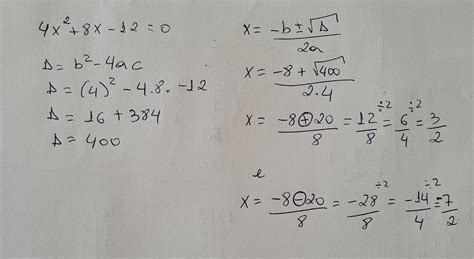 4x²+8x-12=0
Δ= b²-4ac
Δ = (4)² -4.8. -12
Δ = 16 + 384
Δ = 400
x = -b±√Δ / 2a
x = -8+√400 / 2.4
x = -8⊕20 / 8 = 12÷2 / 8 = 6÷2 / 4 = 3 / 2
e
x = -8⊖20 / 8 = -28÷2 / 8 = -14÷2 / 4 = -7 / 2